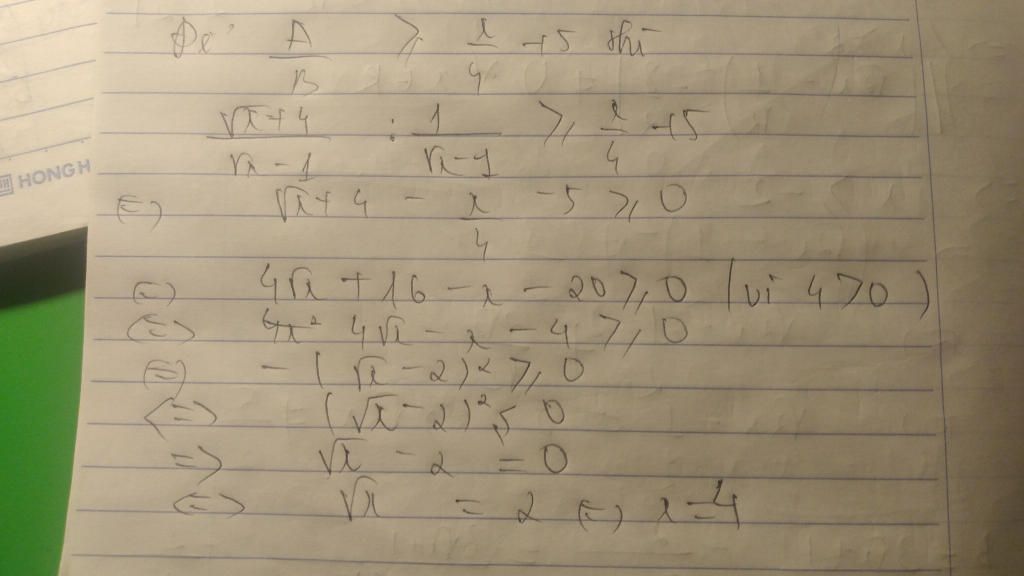 Để A/B ≥ x/4 + 5 thì
(√x + 4)/(√x - 1) : 1/(√x - 1) ≥ x/4 + 5
HONG H
(=) √x + 4 - x/4 - 5 ≥ 0
(=) 4√x + 16 - x - 20 ≥ 0 (vì 4 > 0)
(=) 4√x - x - 4 ≥ 0
(=) - (√x - 2)² ≥ 0
<=> (√x - 2)² ≤ 0
=> √x - 2 = 0
<=> √x = 2 (=) x = 4